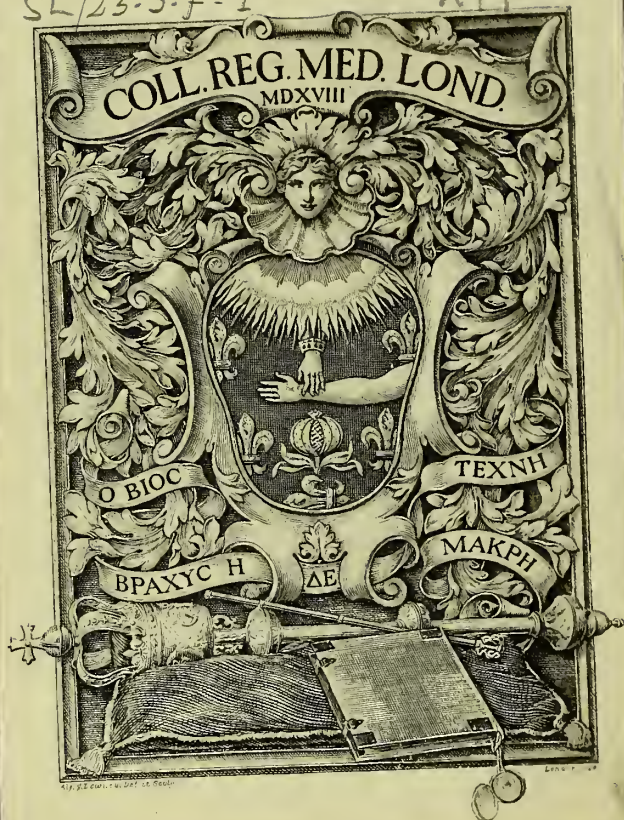 SL/23-3-f-1
COLL. REG. MED. LOND.
MDXVIII
Ο ΒΙΟC
ΒΡΑΧΥC Η
ΔΕ
ΤΕΧΝΗ
ΜΑΚΡΗ